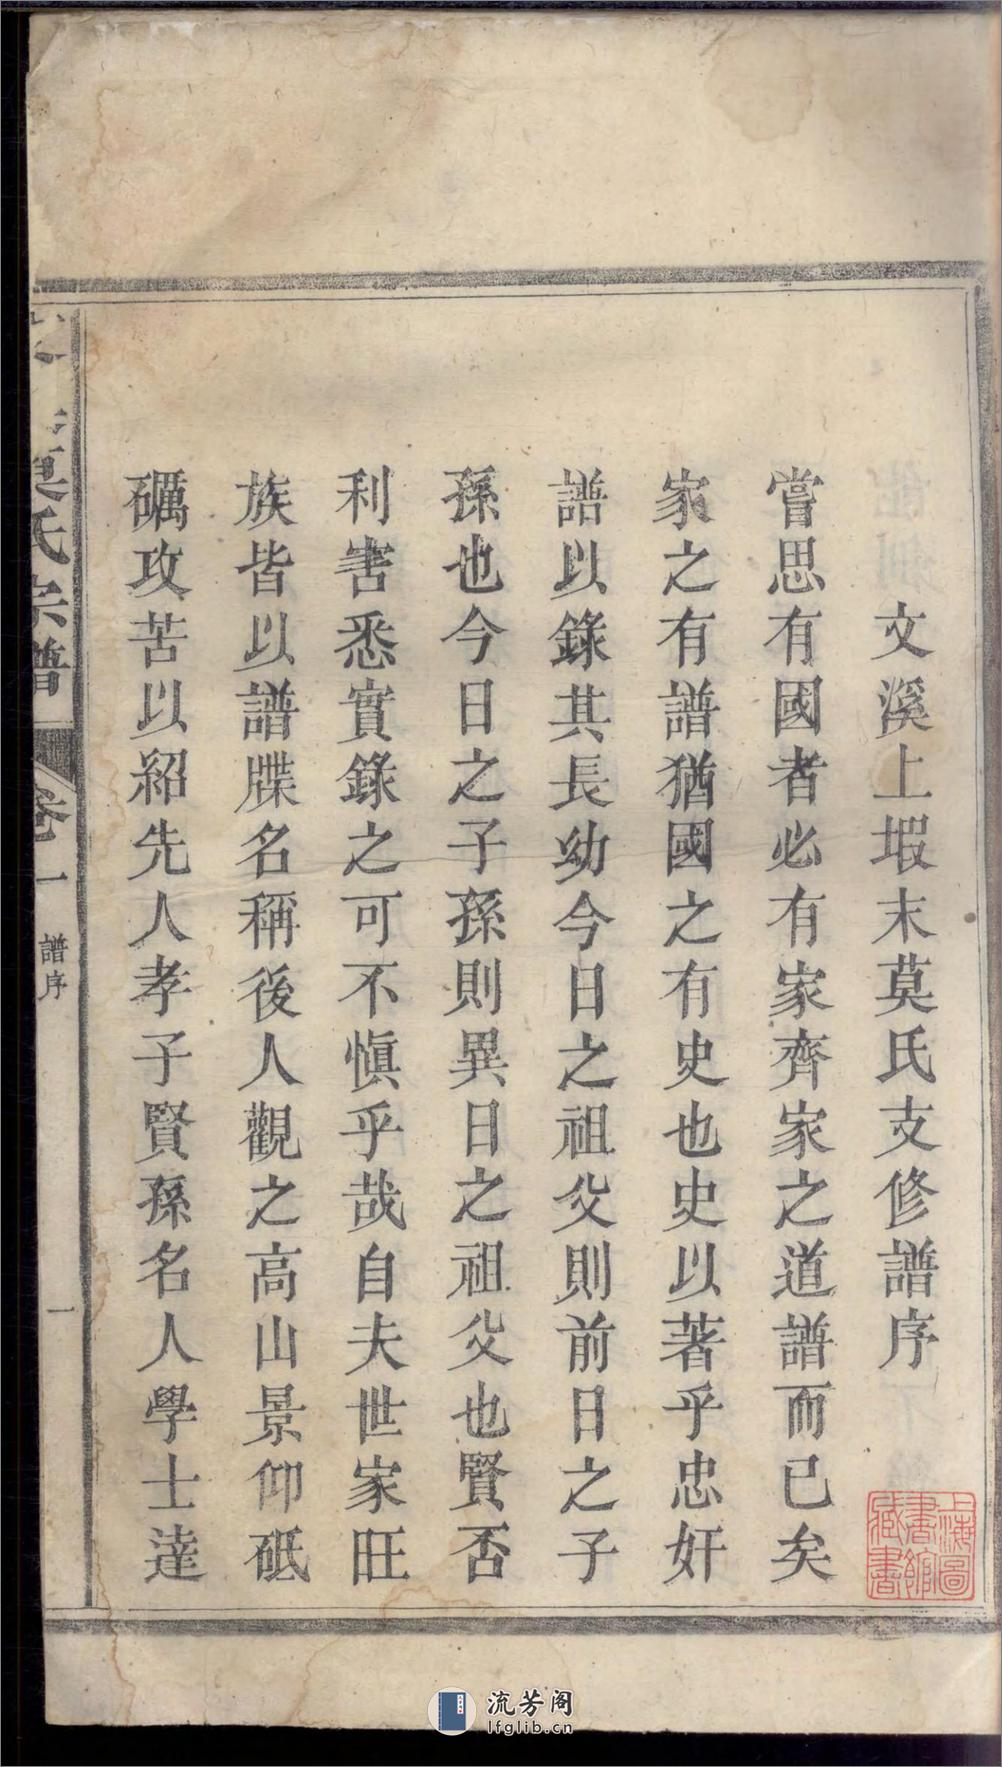 文溪上塅末莫氏支修譜序
嘗思有國者必有家齊家之道譜而已矣
家之有譜猶國之有史也史以著乎忠奸
譜以錄其長幼今日之祖父則前日之子
孫也今日之子孫則異日之祖父也賢否
利害悉實錄之可不慎乎哉自夫世家旺
族皆以譜牒名稱後人觀之高山景仰砥
礪攻苦以紹先人孝子賢孫名人學士達
莫氏宗譜
卷一
譜序
一
上海圖書館藏書
流芳阁
lfglib.cn